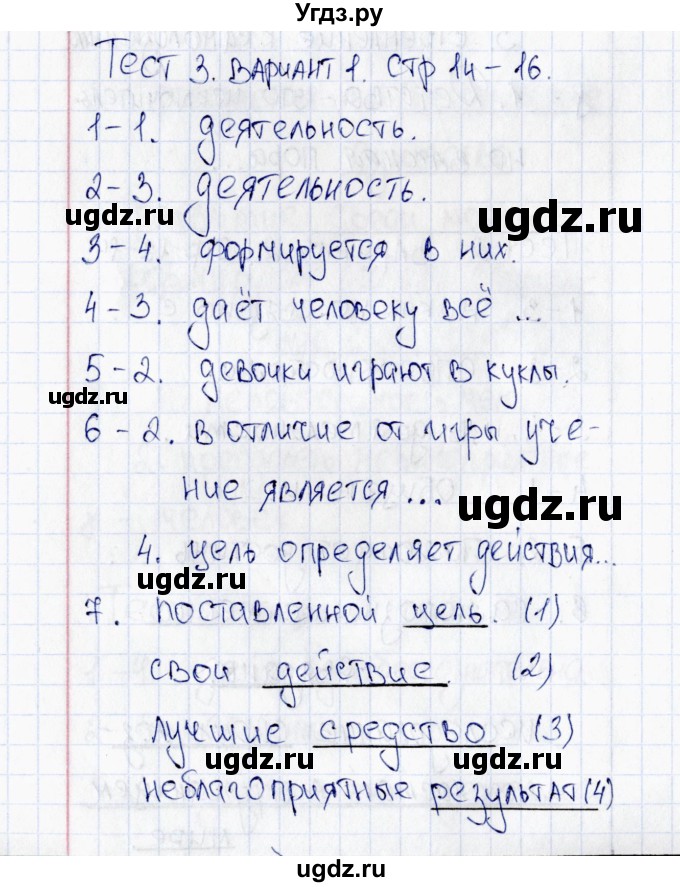 Угдз.ру
Тест 3. Вариант 1. Стр 14-16.
1-1. деятельность.
2-3. деятельность.
ugdz.ru ugdz.ru
3-4. формируется в них.
4-3. даёт человеку всё ...
5-2. девочки играют в куклы.
ugdz.ru
6-2. в отличие от игры уче-
ние является ...
ugdz.ru
4. цель определяет действия...
7. поставленной цель. (1)
свои действие. (2)
лучшие средство (3)
ugdz.ru ugdz.ru
неблагоприятные результат (4)
ugdz.ru